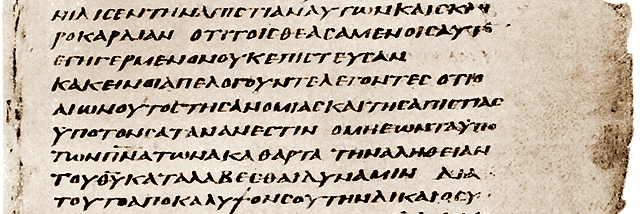 ΝΙΔΙϹΕΝΤΗΝΑΠΙϹΤΙΑΝΑΥΤΩΝΚΑΙϹΚΛΗ
ΡΟΚΑΡΔΙΑΝ ΟΤΙΤΟΙϹΘΕΑϹΑΜΕΝΟΙϹΑΥΤΟ
ΕΓΗΓΕΡΜΕΝΟΝΟΥΚΕΠΙϹΤΕΥϹΑΝ
ΚΑΚΕΙΝΟΙΑΠΕΛΟΓΟΥΝΤΕΛΕΓΟΝΤΕϹ ΟΤΙΟ
ΑΙΩΝΟΥΤΟϹΤΗϹΑΝΟΜΙΑϹΚΑΙΤΗϹΑΠΙϹΤΙΑϹ
ΥΠΟΤΟΝϹΑΤΑΝΑΝΕϹΤΙΝ ΟΜΗΕΩΝΤΑΥΠΟ
ΤΩΝΠ̅Ν̅ΑΤΩΝΑΚΑΘΑΡΤΑ ΤΗΝΑΛΗΘΕΙΑΝ
ΤΟΥΘ̅Υ̅ΚΑΤΑΛΑΒΕϹΘΑΙΔΥΝΑΜΙΝ ΔΙΑ
ΤΟΥΤΟΑΠΟΚΑΛΥΨΟΝϹΟΥΤΗΝΔΙΚΑΙΟϹΥ